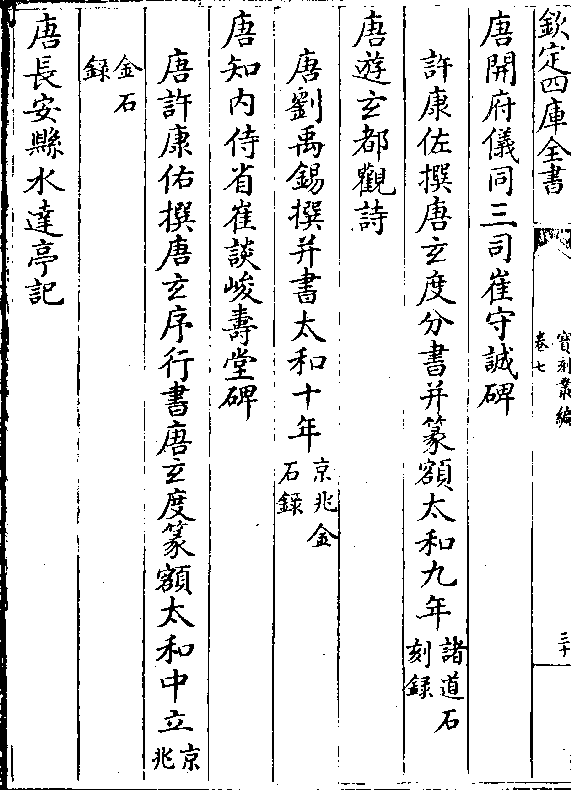 欽定四庫全書
寶刻叢編
卷七
三十
唐開府儀同三司崔守誠碑
許康佐撰唐玄度分書并篆額太和九年諸道石刻録
唐遊玄都觀詩
唐劉禹錫撰并書太和十年京兆金石録
唐知内侍省崔談峻壽堂碑
唐許康佑撰唐玄序行書唐玄度篆額太和中立京兆
金石録
唐長安縣水達亭記